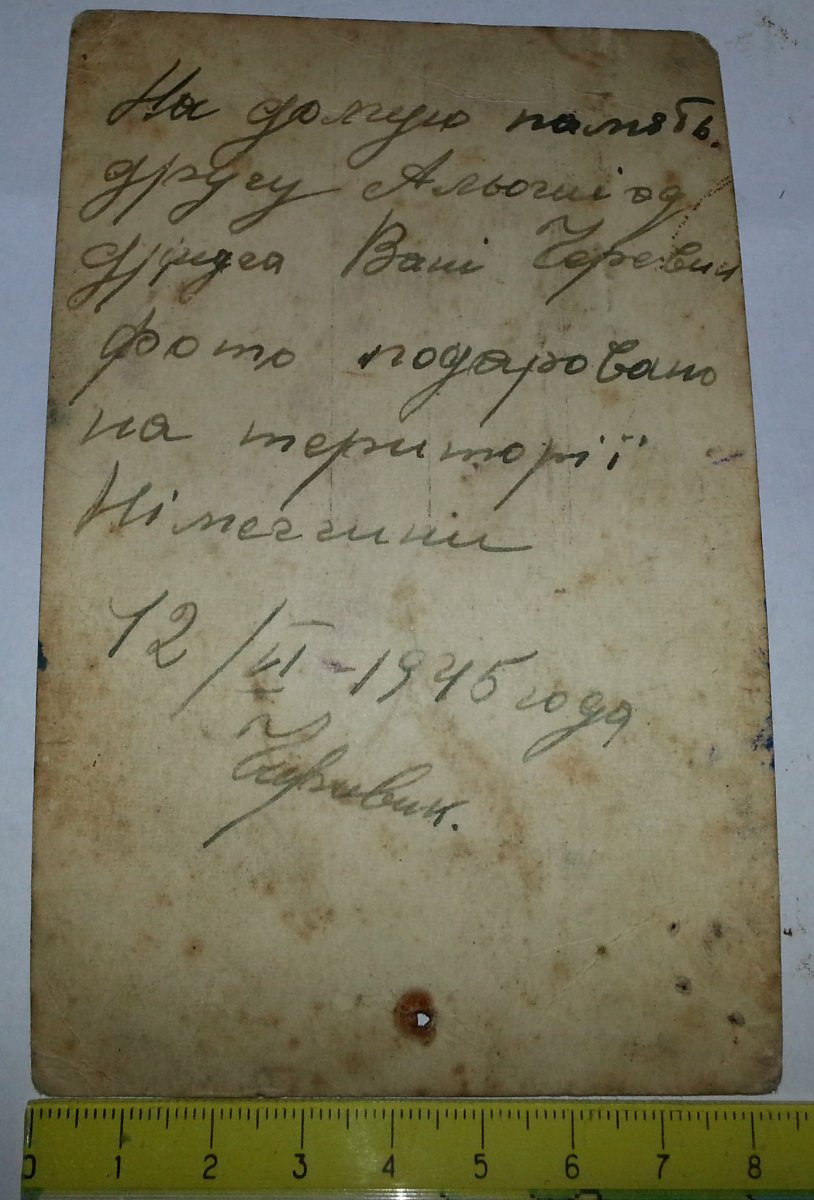 На долгую память.
другу Альоши од
друга Вані Черевик
фото подаровано
на території
Німеччини
12/VI-1945 года
Черевик.
0 1 2 3 4 5 6 7 8